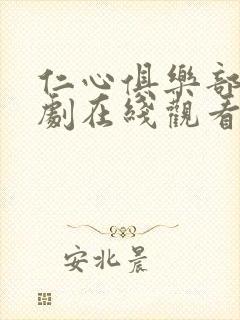 仁心俱樂部
劇在綫觀看
安北晨